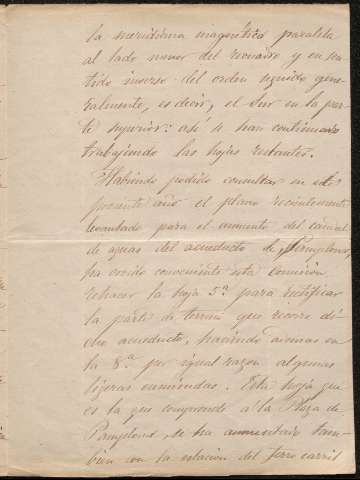 la meridiana magnética paralela
al lado menor del recuadro y en sen-
tido inverso del orden seguido gene-
ralmente, es decir, el Sur en la par-
te superior: así se han continuado
trabajando las hojas restantes.
Habiendo podido consultar en el
presente año el plano recientemente
levantado para el aumento del caudal
de aguas del acueducto de Pamplona,
ha creido conveniente esta Comisión
rehacer la hoja 5ª para rectificar
la parte de terreno que recorre di-
cho acueducto, haciendo ademas en
la 8ª por igual razon algunas
ligeras enmiendas. Esta hoja que
es la que comprende á la Plaza de
Pamplona, se ha aumentado tam-
bien con la estacion del ferro carril